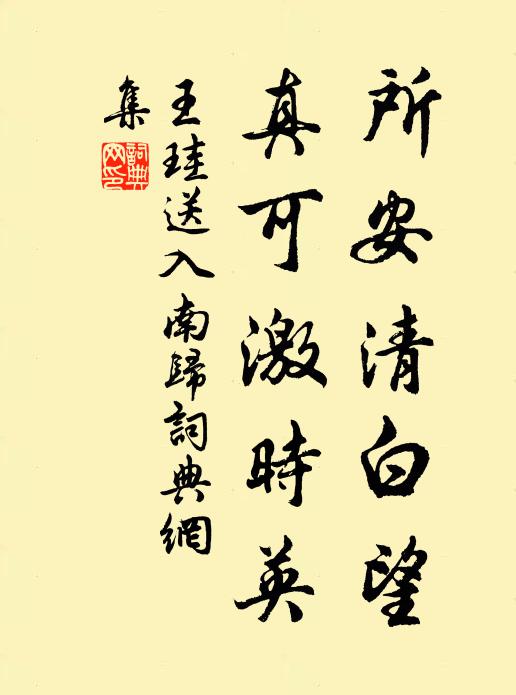 所安清白望
真可激時英
王珪送入南歸詞典網
集
詞典網印